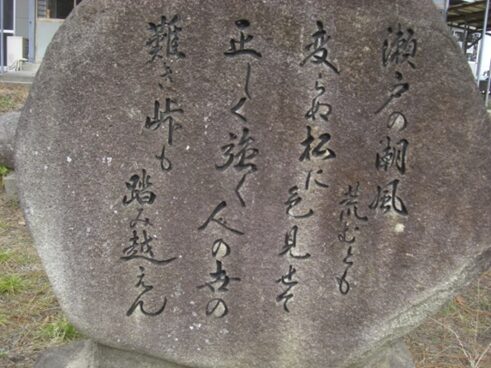 瀬戸の潮風
荒むとも
変らぬ松に
色見せて
正しく強く
人の世の
難き峠も
踏み越えん